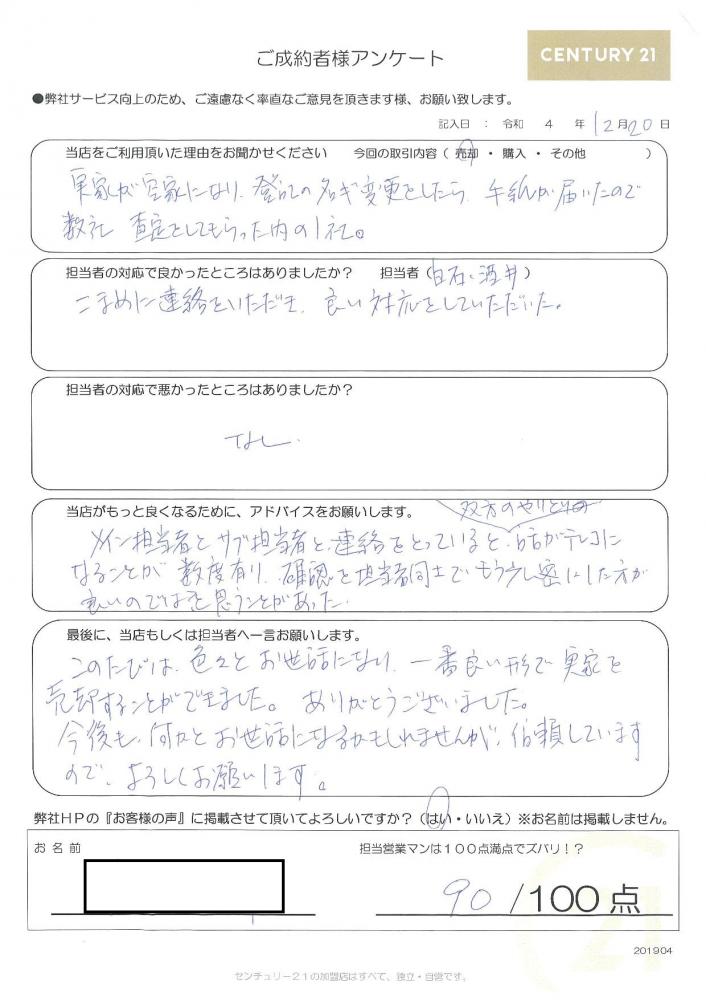 ご成約者様アンケート
CENTURY 21
●弊社サービス向上のため、ご遠慮なく率直なご意見を頂きます様、お願い致します。
記入日 : 令和 4 年 12月20日
当店をご利用頂いた理由をお聞かせください 今回の取引内容 ( 売却 ・ 購入 ・ その他 )
実家が空家になり、登記の名ギ変更をしたら、手紙が届いたので
数社 査定をしてもらった内の1社。
担当者の対応で良かったところはありましたか? 担当者 ( 白石・酒井 )
こまめに連絡をいただき、良い対応をしていただいた。
担当者の対応で悪かったところはありましたか?
なし.
当店がもっと良くなるために、アドバイスをお願いします。
双方のやりとりの
メイン担当者とサブ担当者と連絡をとっていると、話がテレコに
なることが 数度有り、確認を担当者同士でもう少し密にした方が
良いのではと思うことがあった.
最後に、当店もしくは担当者へ一言お願いします。
このたびは、色々とお世話になり、一番良い形で実家を
売却することができました。ありがとうございました。
今後も、何かとお世話になるかもしれませんが、信頼しています
ので、よろしくお願いします。
弊社HPの『お客様の声』に掲載させて頂いてよろしいですか? (はい・いいえ) ※お名前は掲載しません。
お名前
担当営業マンは100点満点でズバリ!?
90 /100点
201904
センチュリー21の加盟店はすべて、独立・自営です。